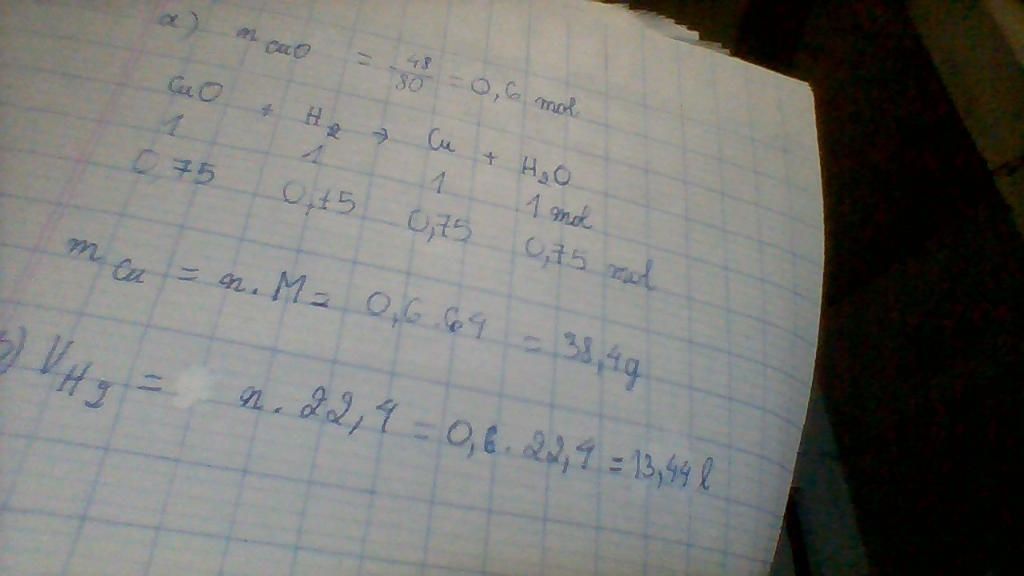 a) n CuO = 48/80 = 0,6 mol
CuO + H2 → Cu + H2O
1 1 1 1 mol
0,75 0,75 0,75 0,75 mol
m Cu = n. M = 0,6. 64 = 38,4g
b) VH2 = n. 22,4 = 0,6. 22,4 = 13,44 l